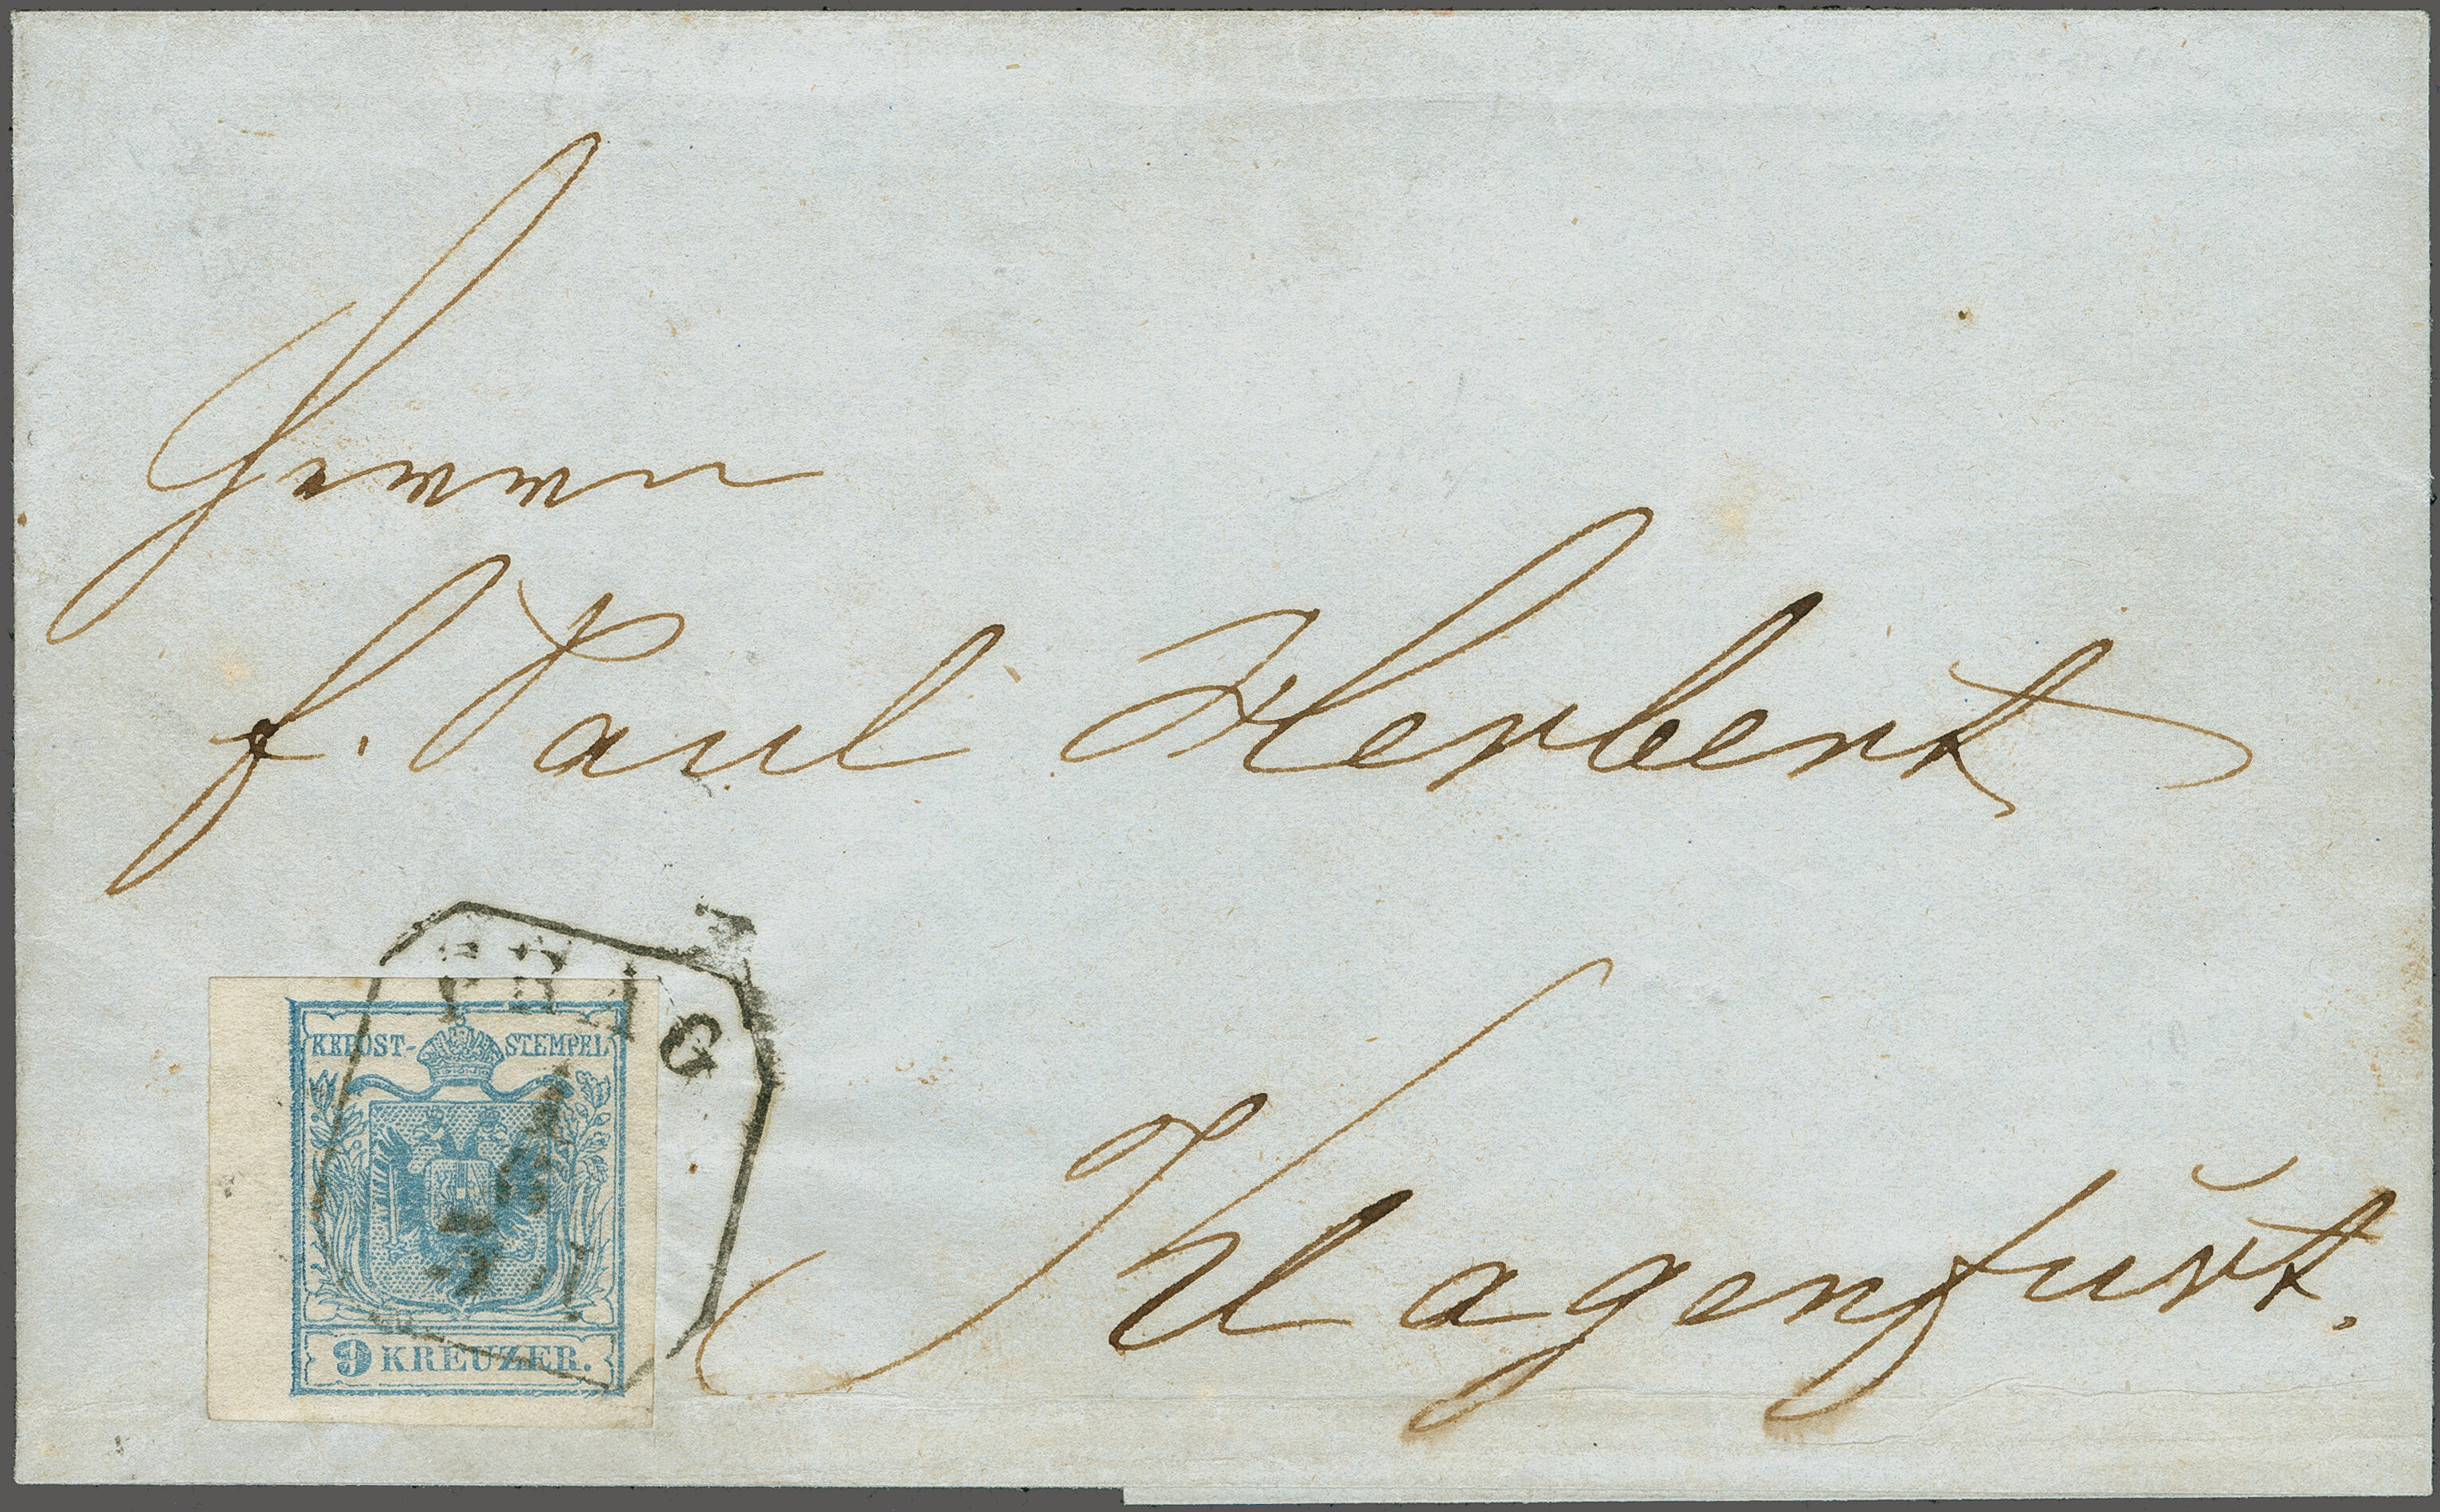 Herrn
J. Paul Herbert
PRAG
KKPOST-STEMPEL
9 KREUZER.
Klagenfurt.